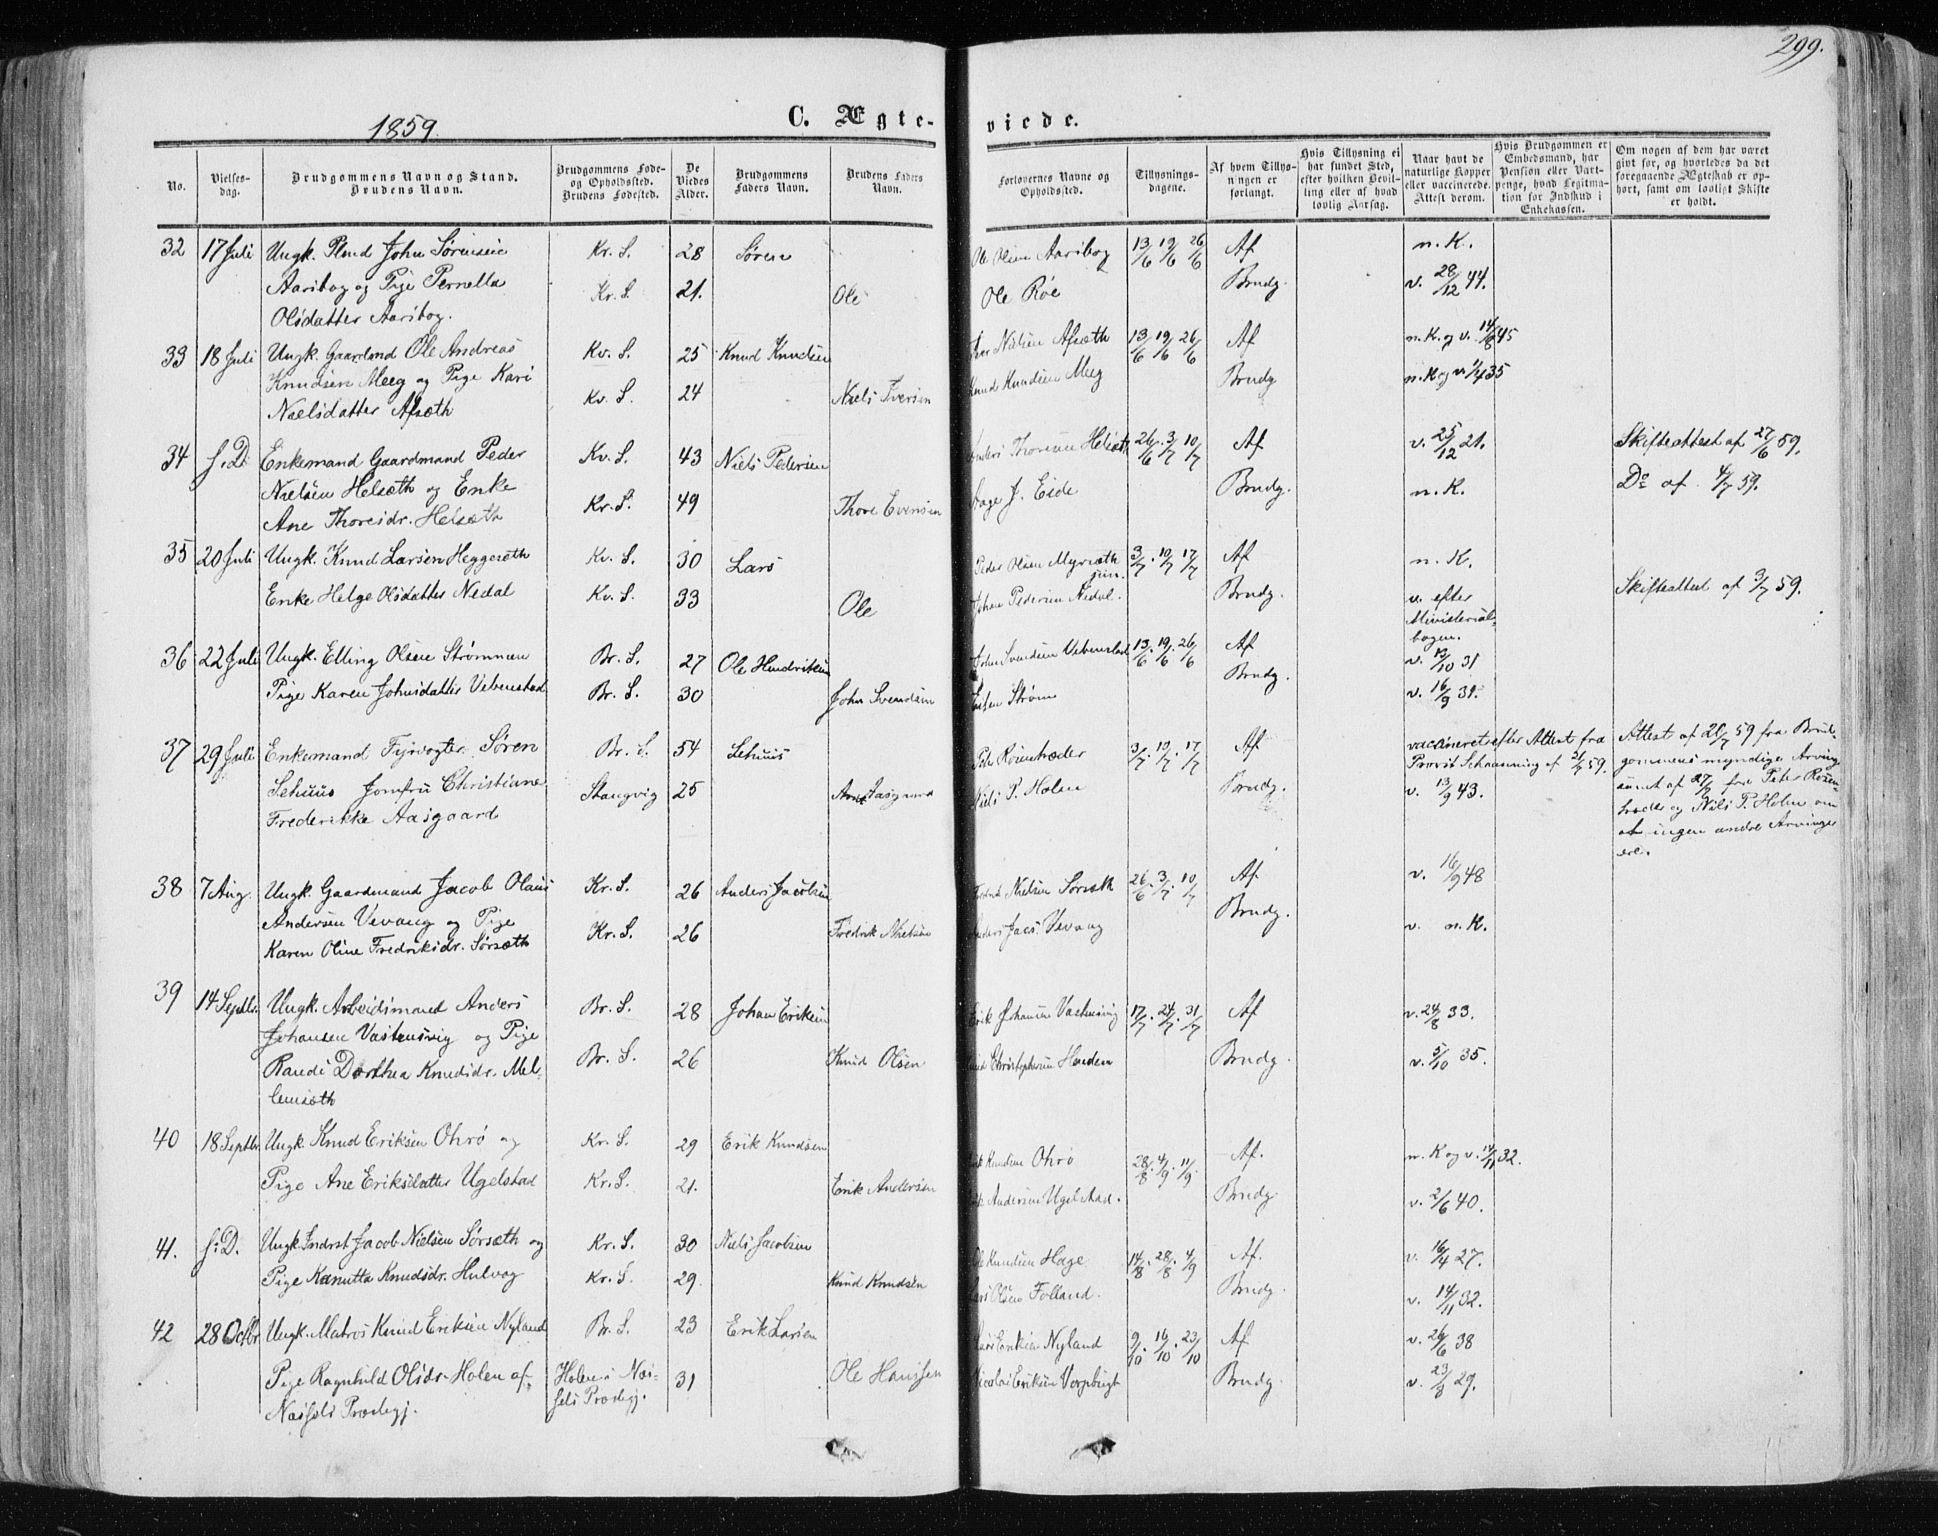 299.
1859.
C. Ægte-
viede.
No.
Vielses-
dag.
Brudgommens Navn og Stand.
Brudens Navn.
Brudgommens Føde-
og Opholdssted.
Brudens Fødested.
De
Viedes
Alder.
Brudgommens
Faders Navn.
Brudens Faders
Navn.
Forlovernes Navne og
Opholdssted.
Tillysnings-
dagene.
Af hvem Tillys-
ningen er
forlangt.
Hvis Tillysning ei
har fundet Sted,
efter hvilken Bevil-
ling eller af hvad
lovlig Aarsag.
Naar havt de
naturlige Kopper
eller vaccinerede.
Attest derom.
Hvis Brudgommen er
Embedsmand, har
Pension eller Vart-
penge, hvad Legitima-
tion for Indskud i
Enkekassen.
Om nogen af dem har været
givt før, og hvorledes da det
foregaaende Ægteskab er op-
hørt, samt om lovligt Skifte
er holdt.
32 17 Juli Ungk. Plmd John Sørensen Kr. S. 28 Søren Ole Olsen Aaribog 13/6 19/6 26/6 Af n. K.
Aaribog og Pige Pernella Kr. S. 21. Ole Ole Röe Brudg. v. 28/12 44.
Olsdatter Aaribog.
33 18 Juli Ungk. Gaardmd Ole Andreas Kv. S. 25 Knud Knudsen Iver Nielsen Afsæth 13/6 19/6 26/6 Af n. K. og v. 14/8 45
Knudsen Meeg og Pige Kari Kv. S. 24 Niels Iversen Knud Knudsen Meeg Brudg n. K og v. 1/7 35
Nielsdatter Afsæth
34 s. D. Enkemand Gaardmand Peder Kv. S. 43 Niels Pedersen Anders Thoresen Helsæth 26/6. 3/7 10/7 Af v. 25/12 21. Skifteattest af 27/6 59.
Nielsen Helsæth og Enke Kr. S. 49 Thore Evensen Aage J. Eide Brudg. n. K. Do af 4/7 59.
Ane Thoresdr. Helsæth
35 20 Juli Ungk. Knud Larsen Heggesæth Kv. S. 30 Lars Peder Olsen Myrsæth 3/7. 10/7 17/7 Af n. K.
jun.
Enke Helge Olsdatter Nedal Kv. S. 33 Ole Johan Pedersen Nedal. Brudg. v. efter Skifteattest af 3/7 59.
Ministerial-
bogen.
36 22 Juli Ungk. Elling Olsen Strømmen Br. S. 27 Ole Hendriksen John Svendsen Vebenstad 13/6. 19/6 26/6 Af v. 13/10 31
Pige Karen Johnsdatter Vebenstad Br. S. 30 John Svendsen Strøm Brudg. v. 16/9 31.
37 29 Juli Enkemand Fyrvogter Søren Br. S. 54 Sehuus Peter Rosenhæder 3/7. 10/7. 17/7 Af vaccineret efter Attest fra Attest af 20/7 59 fra Brud-
Provst Schaanning af 21/7 59. gommens myndige Arving
Sehuus Jomfru Christiane Stangvig 25 Aasgaard Niels P. Holen Brudg. v. 13/9 43. samt af 27/7 fra Peter Rosen-
Frederikke Aasgaard hæder og Nils P. Holen om
at ingen andre Arvinger
ere.
38 7 Aug. Ungk. Gaardmand Jacob Olaus Kr. S. 26 Anders Jacobsen Fredrik Nielsen Sørsæth 26/6. 3/7. 10/7 Af v. 16/9 48
Andersen Vevang og Pige Kr. S. 26 Fredrik Nielsen Anders Jacs. Vevang Brudg. v. n. K.
Karen Oline Fredriksdr. Sørsæth
39 14 Septbr. Ungk. Arbeidsmand Anders Br. S. 28 Johan Eriksen Erik Johansen Vastensvig 17/7. 24/7. 31/7 Af v. 24/8 33.
Johansen Vastensvig og Pige
Randi Dorthea Knudsdr. Mel- Br. S. 26 Knud Olsen Christophersen Brudg. v. 5/10 35.
lemsæth
40 18 Septbr. Ungk. Knud Eriksen Ohrö og Kr. S. 29 Erik Knudsen Erik Knudsen Ohrö 28/8. 4/9. 11/9. Af. n. K og v. 14/11 32.
Pige Ane Eriksdatter Ugelstad Kr. S. 21. Erik Andersen Erik Andersen Ugelstad. Brudg v. 2/6 40.
41. s. D. Ungk. Indrst Jacob Nielsen Sørsæth og Kr. S. 30 Niels Jacobsen Ole Knudsen Hage 14/8. 28/8. 4/9 Af. v. 16/4 27.
Pige Kanutta Knudsdr. Hulvog Kr. S. 29. Knud Knudsen Lars Olsen Folland. Brudg. v. 14/11 32.
42 28 Octbr Ungk. Matros Knud Eriksen Nyland Br. S. 23 Erik Larsen Lars Eriksen Nyland 9/10. 16/10. 23/10 Af v. 26/6 38
Pige Ragnhild Olsdr. Holen af Holen i Næs- 31 Ole Hansen Nicolai Eriksen Brudg. v. 23/8 29.
Næssets Prestegj. sets Prestegj.